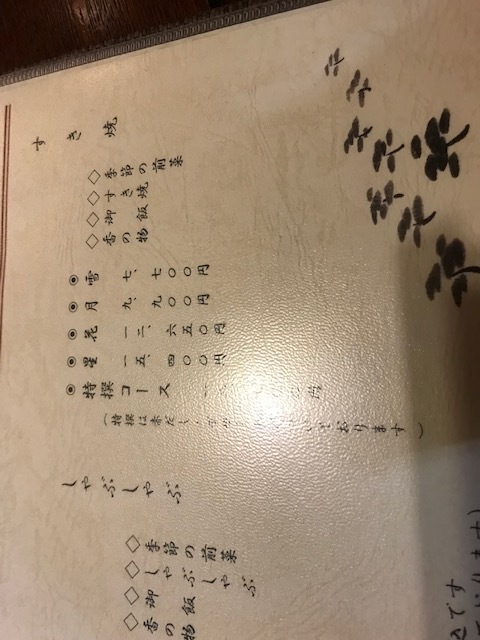 すき焼
◇季節の前菜
◇すき焼
◇御飯
◇香の物
◉雪 七、七〇〇円
◉月 九、九〇〇円
◉花 一二、六五〇円
◉星 一五、四〇〇円
◉特撰コース 円
(特撰は赤だ おります)
しゃぶしゃぶ
◇季節の前菜
◇しゃぶしゃぶ
◇御飯
◇香の物
です